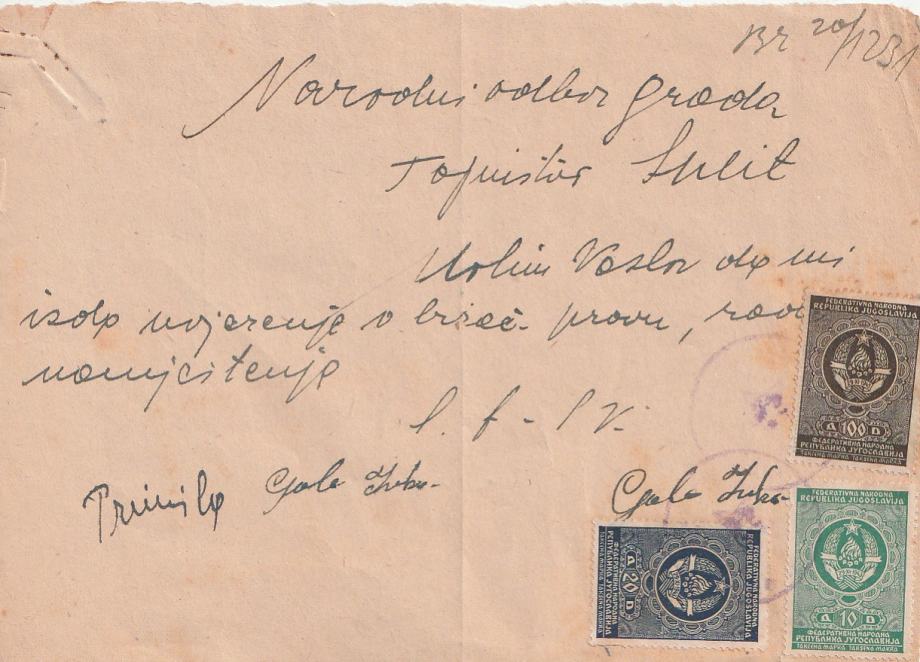 Br 20/1231
Narodni odbor grada
Split
Molim Naslov da mi
izda uvjerenje o birač. pravu, radi
namještenja
S. f - S N.
Primila Gala Luka
Gala Luka
FEDERATIVNA NARODNA
REPUBLIKA JUGOSLAVIJA
Д 100 D
ФЕДЕРАТИВНА НАРОДНА
РЕПУБЛИКА ЈУГОСЛАВИЈА
ТАКСЕНА МАРКА TAKSENA MARKA
FEDERATIVNA NARODNA
REPUBLIKA JUGOSLAVIJA
Д 20 D
ФЕДЕРАТИВНА НАРОДНА
РЕПУБЛИКА ЈУГОСЛАВИЈА
FEDERATIVNA NARODNA
REPUBLIKA JUGOSLAVIJA
Д 10 D
ФЕДЕРАТИВНА НАРОДНА
РЕПУБЛИКА ЈУГОСЛАВИЈА
ТАКСЕНА МАРКА TAKSENA MARKA